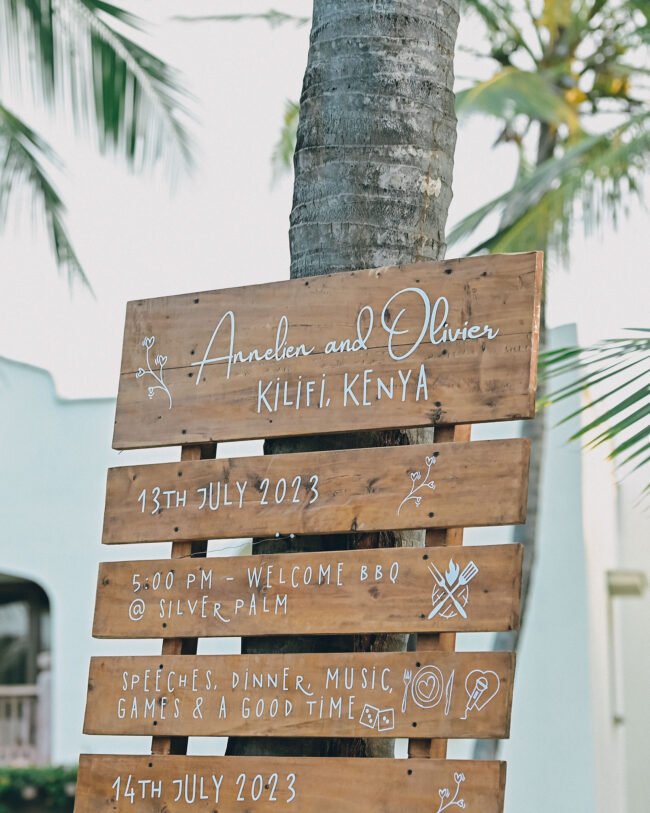 Annelien and Olivier
KILIFI, KENYA
13TH JULY 2023
5:00 PM - WELCOME BBQ
@ SILVER PALM
SPEECHES, DINNER, MUSIC,
GAMES & A GOOD TIME
14TH JULY 2023